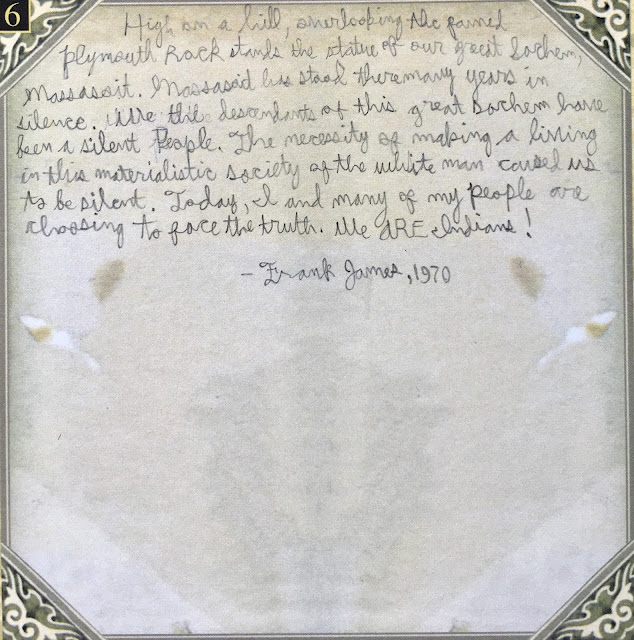 6
High on a hill, overlooking the famed
Plymouth Rock stands the statue of our great Sachem,
Massasoit. Massasoid has stood there many years in
silence. We the descendants of this great Sachem have
been a silent People. The necessity of making a living
in this materialistic society of the white man caused us
to be silent. Today, I and many of my people are
choosing to face the truth. We ARE Indians!
- Frank James, 1970